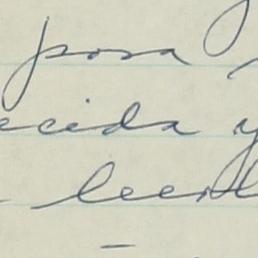 posa
ecida y
leerl